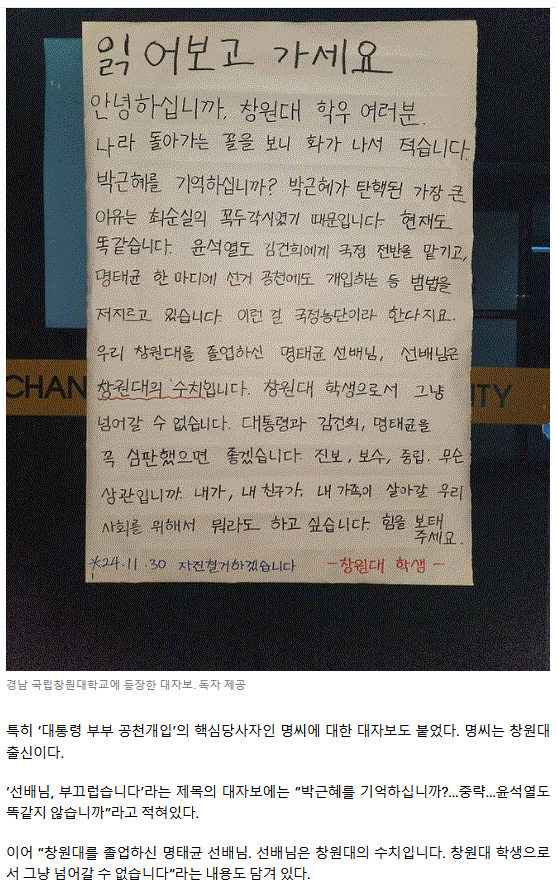 읽어보고 가세요
안녕하십니까, 창원대 학우 여러분.
나라 돌아가는 꼴을 보니 화가 나서 적습니다.
박근혜를 기억하십니까? 박근혜가 탄핵된 가장 큰
이유는 최순실의 꼭두각시였기 때문입니다. 현재도
똑같습니다. 윤석열도 김건희에게 국정 전반을 맡기고,
명태균 한 마디에 선거 공천에도 개입하는 등 범법을
저지르고 있습니다. 이런 걸 국정농단이라 한다지요.
우리 창원대를 졸업하신 명태균 선배님, 선배님은
창원대의 수치입니다. 창원대 학생으로서 그냥
CHAN
ITY
넘어갈 수 없습니다. 대통령과 김건희, 명태균을
꼭 심판했으면 좋겠습니다. 진보, 보수, 중립. 무슨
상관입니까. 내가, 내 친구가, 내 가족이 살아갈 우리
사회를 위해서 뭐라도 하고 싶습니다. 힘을 보태
주세요.
※24.11.30 자진철거하겠습니다 -창원대 학생-
경남 국립창원대학교에 등장한 대자보. 독자 제공
특히 ‘대통령 부부 공천개입’의 핵심당사자인 명씨에 대한 대자보도 붙었다. 명씨는 창원대
출신이다.
‘선배님, 부끄럽습니다’라는 제목의 대자보에는 “박근혜를 기억하십니까?...중략...윤석열도
똑같지 않습니까”라고 적혀있다.
이어 “창원대를 졸업하신 명태균 선배님. 선배님은 창원대의 수치입니다. 창원대 학생으로
서 그냥 넘어갈 수 없습니다”라는 내용도 담겨 있다.